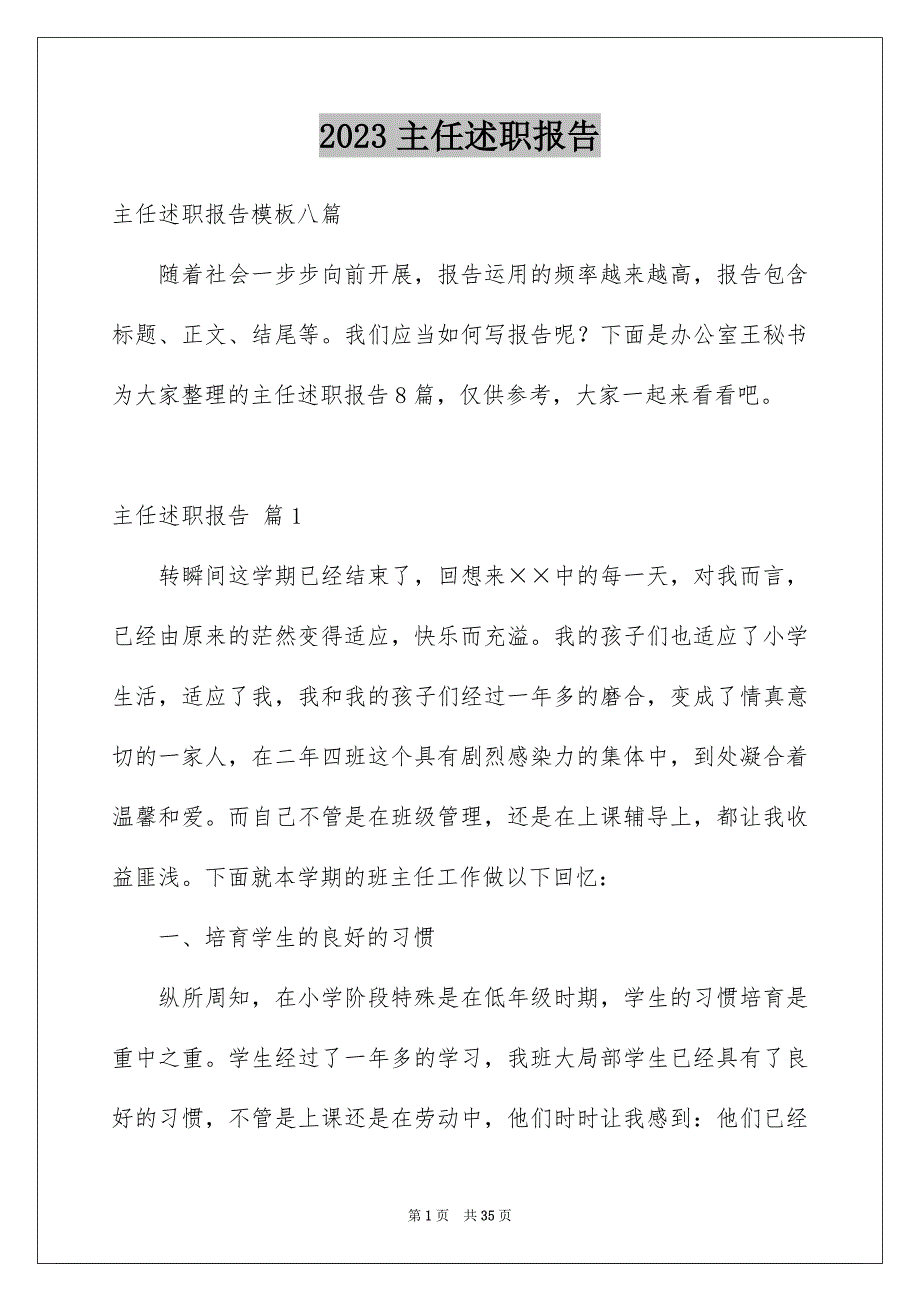 2023主任述职报告
主任述职报告模板八篇
随着社会一步步向前开展，报告运用的频率越来越高，报告包含
标题、正文、结尾等。我们应当如何写报告呢？下面是办公室王秘书
为大家整理的主任述职报告8篇，仅供参考，大家一起来看看吧。
主任述职报告 篇1
转瞬间这学期已经结束了，回想来××中的每一天，对我而言，
已经由原来的茫然变得适应，快乐而充溢。我的孩子们也适应了小学
生活，适应了我，我和我的孩子们经过一年多的磨合，变成了情真意
切的一家人，在二年四班这个具有剧烈感染力的集体中，到处凝合着
温馨和爱。而自己不管是在班级管理，还是在上课辅导上，都让我收
益匪浅。下面就本学期的班主任工作做以下回忆：
一、培育学生的良好的习惯
纵所周知，在小学阶段特殊是在低年级时期，学生的习惯培育是
重中之重。学生经过了一年多的学习，我班大局部学生已经具有了良
好的习惯，不管是上课还是在劳动中，他们时时让我感到：他们已经
第1页 共35页